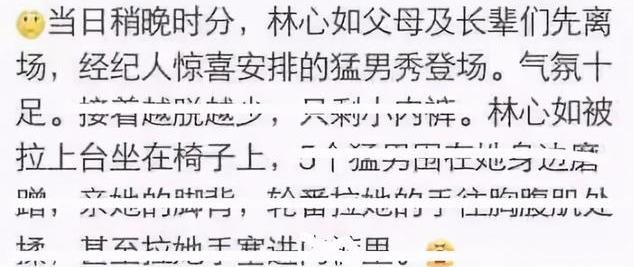 当日稍晚时分，林心如父母及长辈们先离
场，经纪人惊喜安排的猛男秀登场。气氛十
足。接着越脱越少，只剩小内裤。林心如被
拉上台坐在椅子上，5个猛男围在她身边磨
蹭，亲她的脚背，轮番拉她的手往胸腹肌处
揉，甚至拉她手塞进